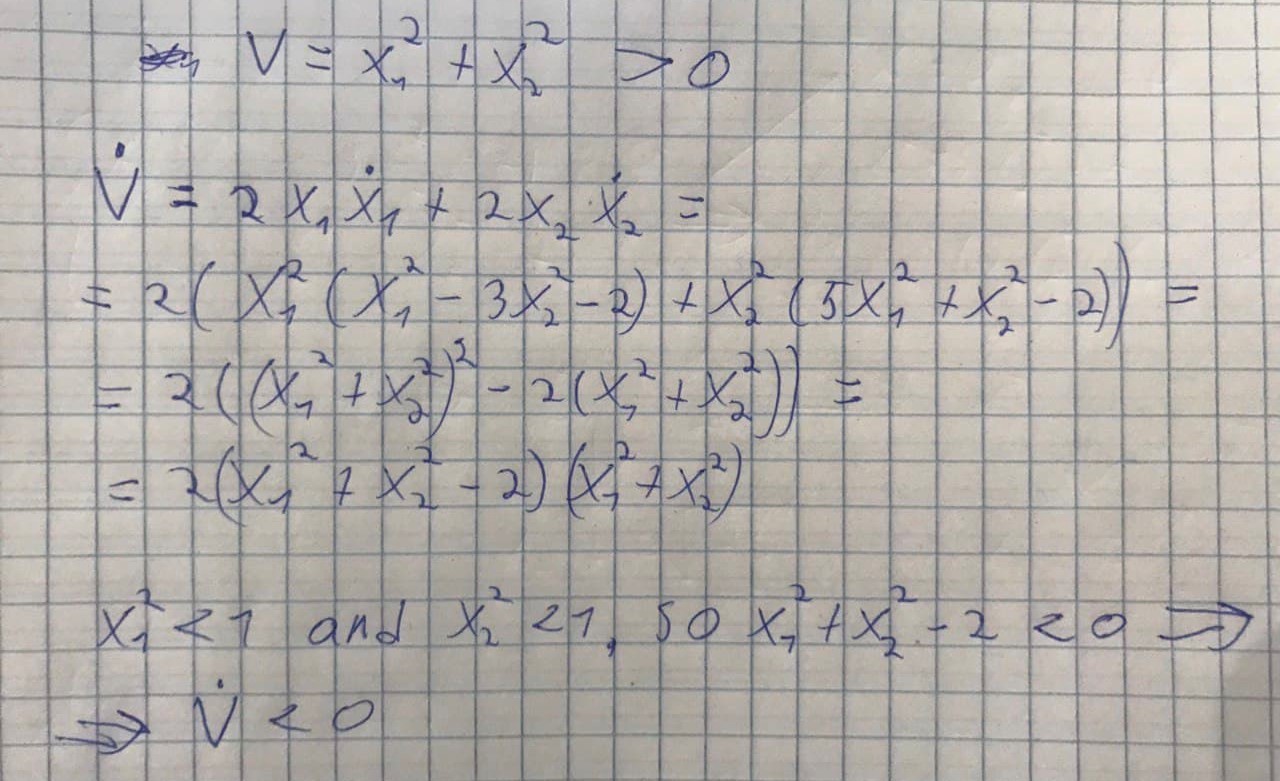 V = x₁² + x₂² > 0
V̇ = 2 x₁ ẋ₁ + 2 x₂ ẋ₂ =
= 2( x₁² ( x₁² − 3x₂² − 2) + x₂² (5x₁² + x₂² − 2)) =
= 2((x₁² + x₂²)² − 2(x₁² + x₂²)) =
= 2(x₁² + x₂² − 2) (x₁² + x₂²)
x₁² < 1 and x₂² < 1, so x₁² + x₂² − 2 < 0 ⇒
⇒ V̇ < 0